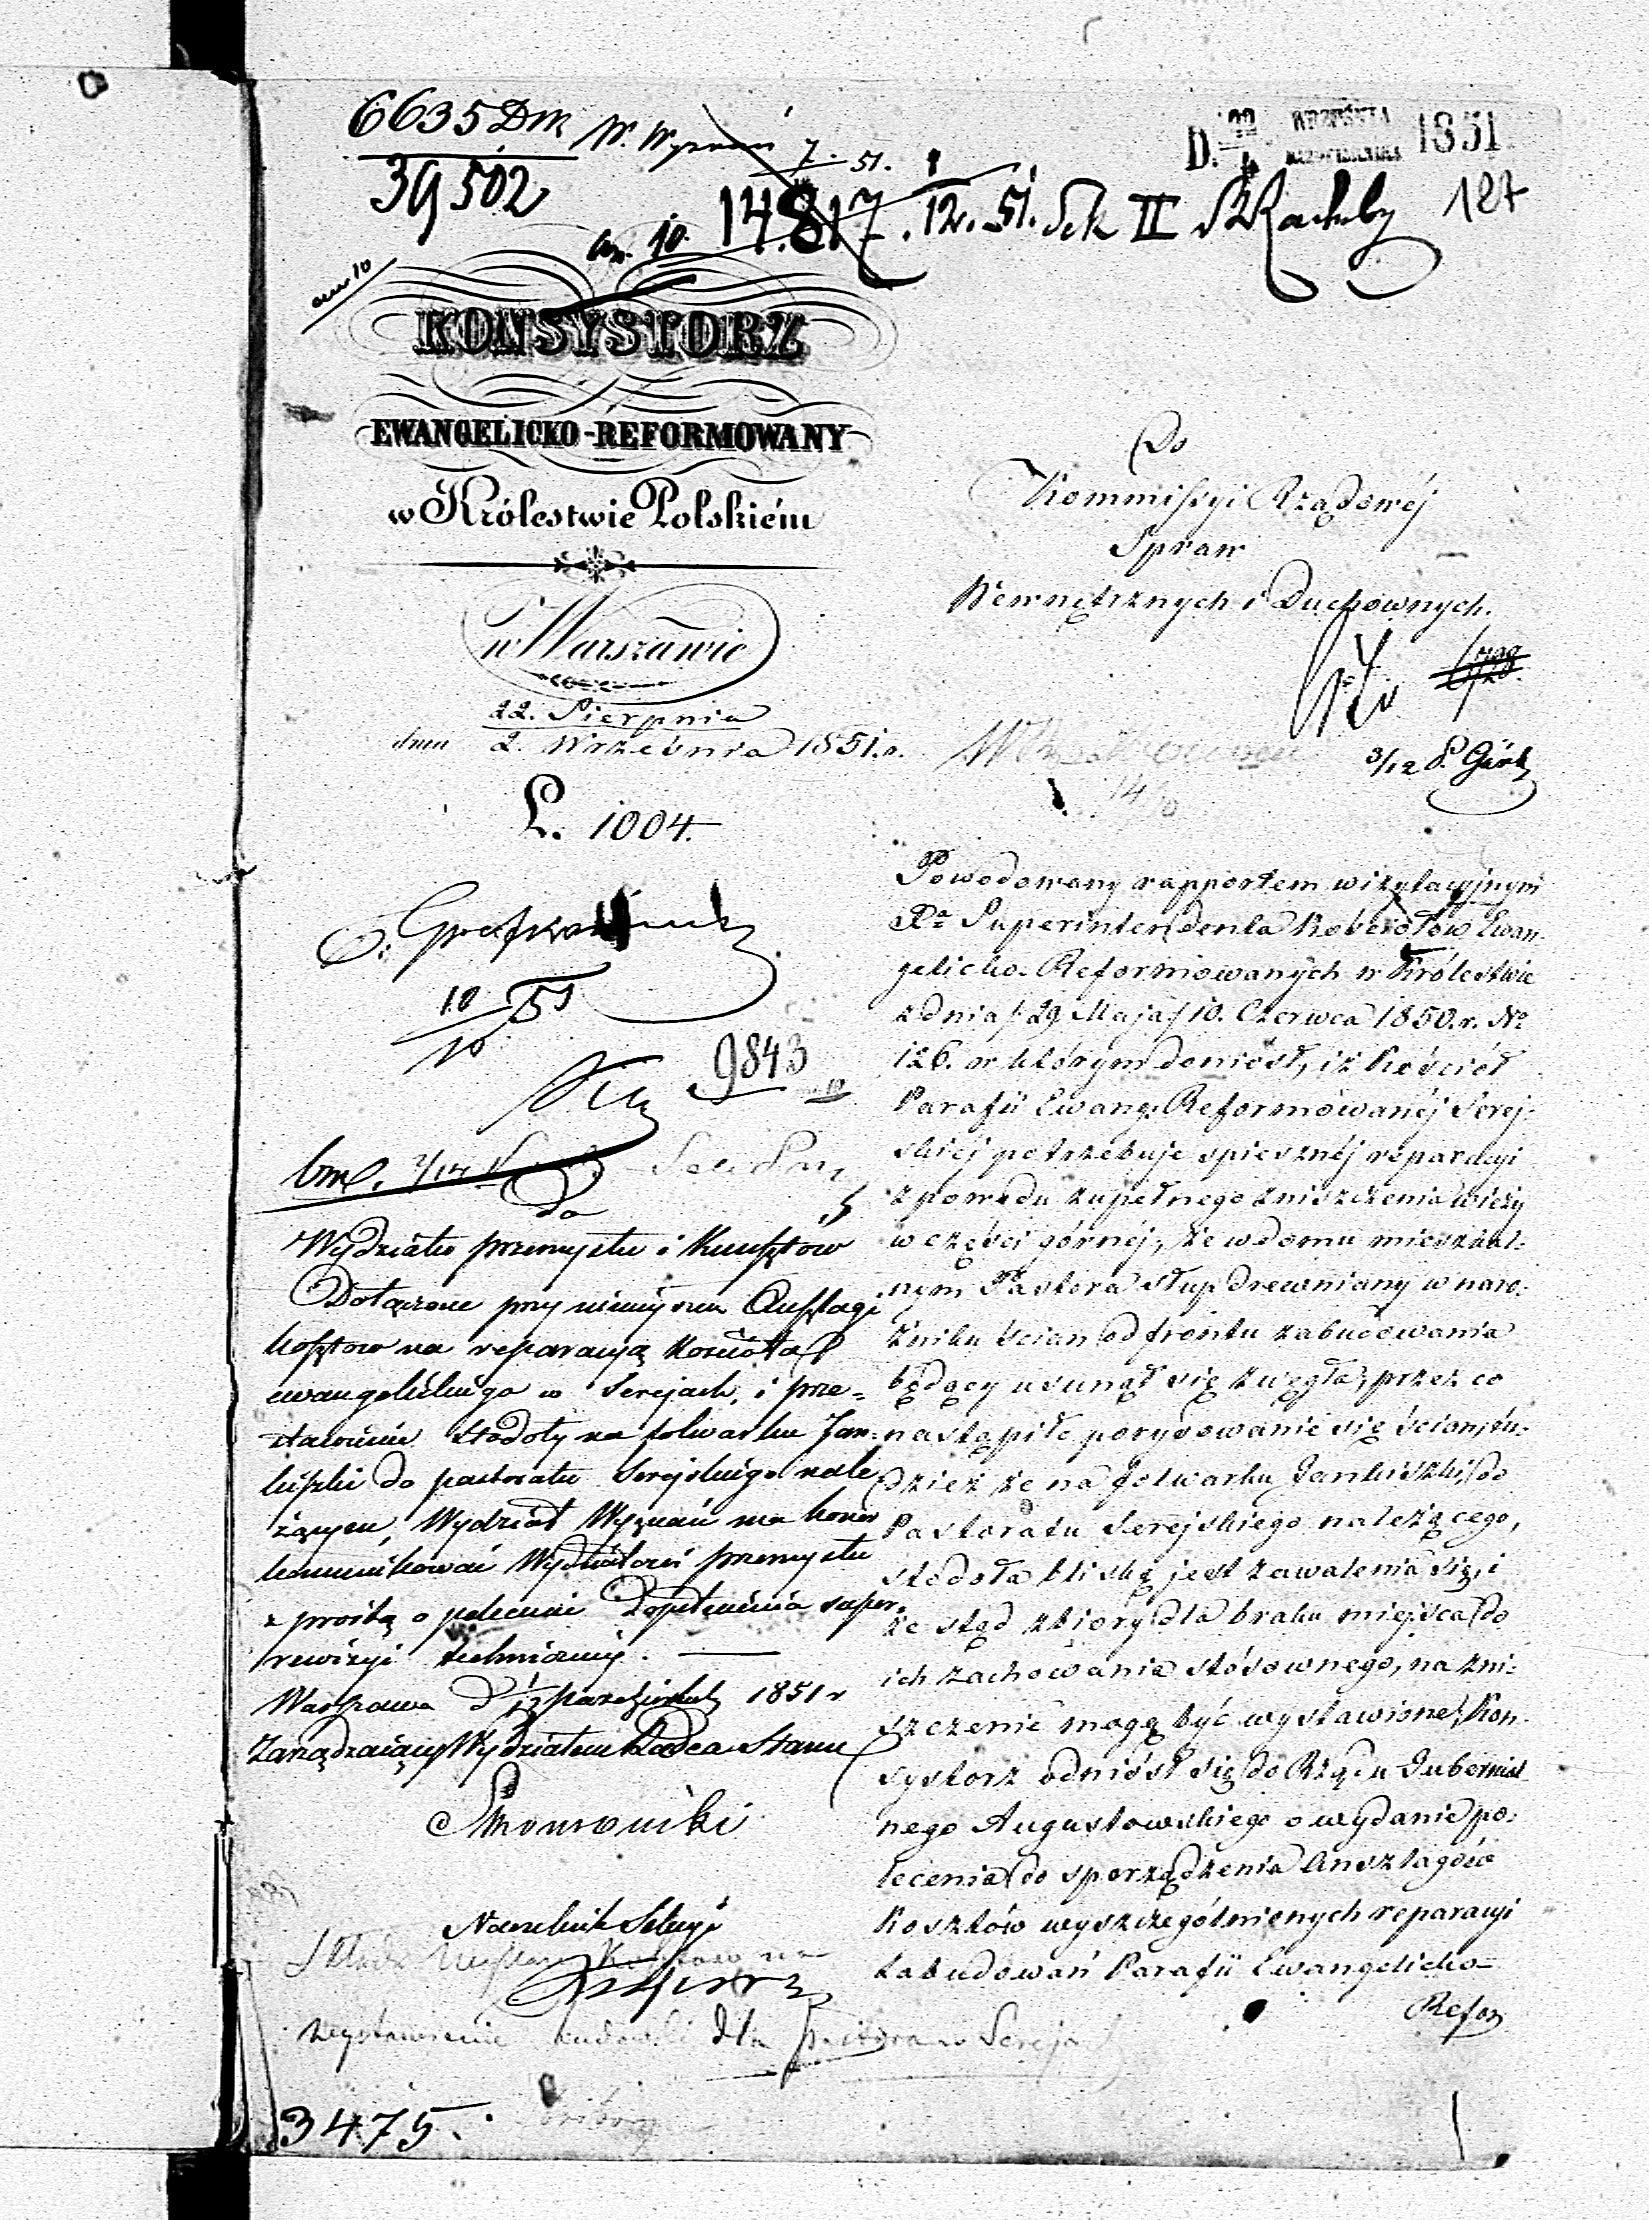 6635 Dm
39 502
W. Wyznań
7. 51.
14.817. 12. 51. Sek II
D. 1851
187
KONSYSTORZ
EWANGELICKO-REFORMOWANY
w Królestwie Polskiém
w Warszawie
22. Sierpnia
dnia 2. Września 1851.r.
L. 1004.
9843
Do
Kommissyi Rządowéj
Spraw
Wewnętrznych i Duchownych.
Powodowany rapportem wizytacyjnym
Xa Superintendenta Kościołów Ewan-
gelicko-Reformowanych w Królestwie
z dnia /:29 Maja/ 10. Czerwca 1850.r. No
126. w którym doniósł, iż Kościół
Parafii Ewang: Reformowanéj Serej-
skiéj potrzebuje spiesznéj reparacyi
z powodu zupełnego zniszczenia wieży
w części górnéj, że w domu mieszkal-
nym Pastora słup drewniany w naro-
żniku ścian od frontu zabudowania
będący usunął się z węgła, przez co
nastąpiło porysowanie się ścian, tu-
dzież że na folwarku Jankiszki, do
Pastoratu Serejskiego należącego,
stodoła bliską jest zawalenia się, i
że stąd zbiory dla braku miejsca do
ich zachowania stósownego, na zni-
szczenie mogą być wystawione, Kon-
systorz odniósł się do Rządu Gubernial-
nego Augustowskiego o wydanie po-
lecenia do sporządzenia Anszlagów
Kosztów wyszczególnionych reparacyi
zabudowań Parafii Ewangelicko-
Refor
do
Wydziału przemysłu i Kunsztów
Dołączone przy niniejszem Anszlagi
kosztów na reparacyą kościoła
ewangelickiego w Serejach, i prze-
stawienie stodoły na folwarku Jan-
kiszki do pastoratu Serejskiego nale
żącym, Wydział Wyznań ma honor
kommunikować Wydziałowi przemysłu
z prośbą o polecenie dopełnienia super-
rewizyi technicznéj.
Warszawa d Października 1851 r
Zarządzający Wydziałem Radca Stanu
Naczelnik Sekcyi
wystawienie dla pastora w Sereja
3475.